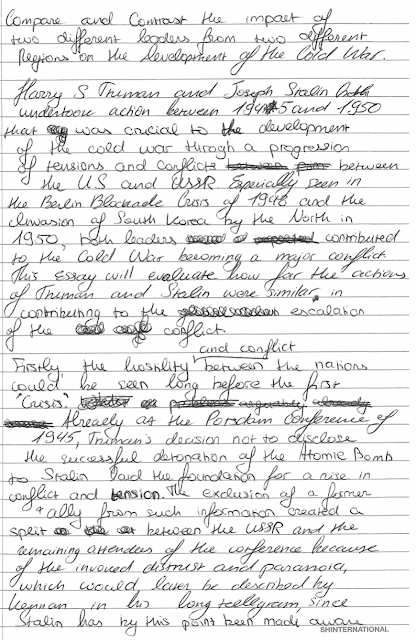 Compare and Contrast the impact of
two different leaders from two different
Regions on the development of the Cold War.
Harry S Truman and Joseph Stalin Both
undertook action between 1945 and 1950
that was crucial to the development
of the cold war through a progression
of tensions and conflicts between
the US and USSR Especially seen in
the Berlin Blockade Crisis of 1948 and the
Invasion of South Korea by the North in
1950, both leaders contributed
to the Cold War becoming a major conflict.
This essay will evaluate how far the actions
of Truman and Stalin were similar in
contributing to the escalation
of the conflict.
and conflict
Firstly, the hostility between the nations
could be seen long before the first
"Crisis".
Already at the Porsdam Conference of
1945, Truman's decision not to disclose
the successful detonation of the Atomic Bomb
to Stalin laid the foundation for a rise in
conflict and tension. The exclusion of a former
ally from such information created a
split between the USSR and the
remaining attendees of the conference because
of the invoued distrust and paranoia,
which would later be described by
Kennan in his long tellegram, since
Stalin has by this point been made aware
SHINTERNATIONAL